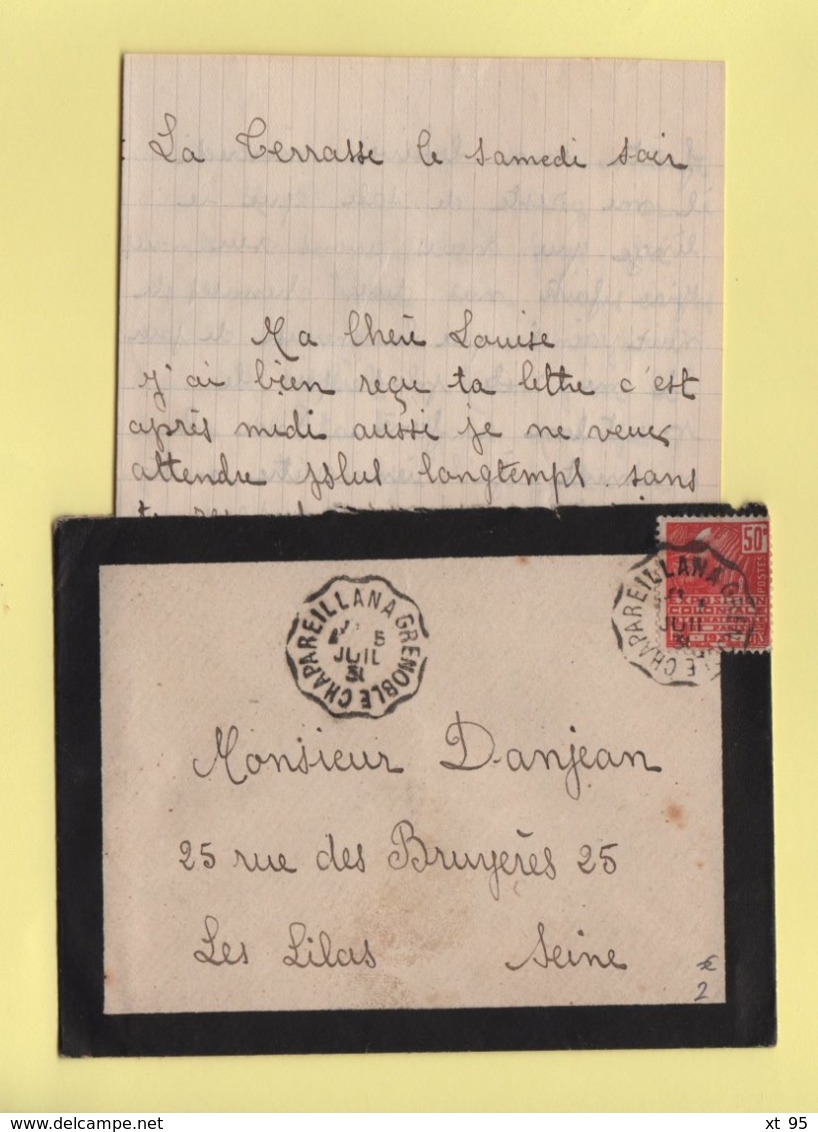 La Terrasse le samedi soir
Ma Chère Louise
j'ai bien reçu ta lettre c'est
après midi aussi je ne veux
attendre plus longtempt sans
CHAPAREILLAN A GRENOBLE
5
JUIL
31
50c
POSTES
EXPOSITION
COLONIALE
CHAPAREILLAN A GRENOBLE
JUIL
31
Monsieur Danjean
25 rue des Bruyères 25
Les Lilas Seine
€
2
delcampe.net
xt 95